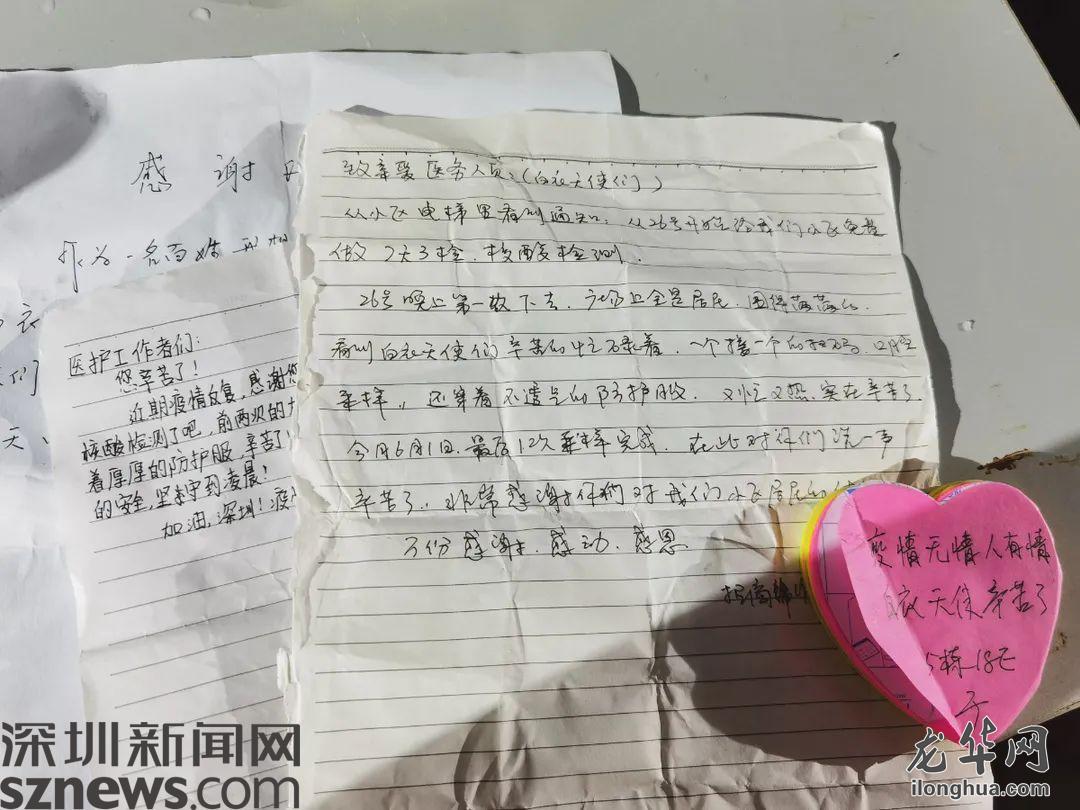 感 谢
作为一名百姓
医护工作者们:
您辛苦了!
近期疫情反复,感谢您
核酸检测了吧,前两次的
着厚厚的防护服,辛苦了!
的安全,坚守到凌晨!
加油,深圳!疫
致亲爱医务人员:(白衣天使们)
从小区电梯里看到通知:从26号开始给我们小区免费
做7天3检,核酸检测.
26号晚上第一次下去,广场上全是居民,围得满满的.
看到白衣天使们辛苦的忙不录着,一个接一个的扫码,口腔
采样,还穿着不透气的防护服,又忙又热,实在辛苦了.
今月6月1日,最后1次采样完成,在此对你们说一声
辛苦了,非常感谢你们对我们小区居民的
万份感谢、感动、感恩
疫情无情人有情
白衣天使辛苦了
5栋-18E
深圳新闻网
sznews.com
龙华网
ilonghua.com